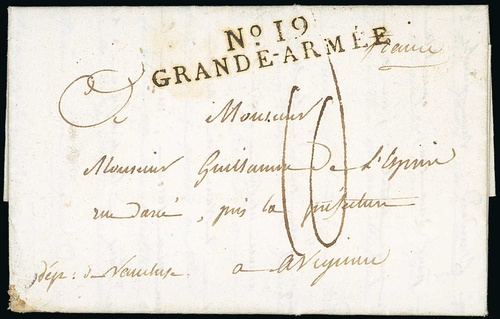 No 19
GRANDE-ARMÉE
france
A Monsieur
Monsieur Guillaume De L'Espine
rue , près la préfecture
dép: de Vaucluse. a avignon